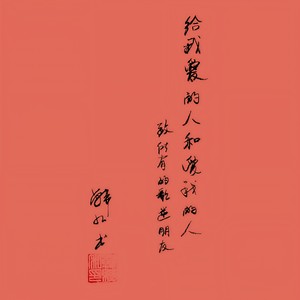 给我爱的人和爱我的人
致所有的歌迷朋友